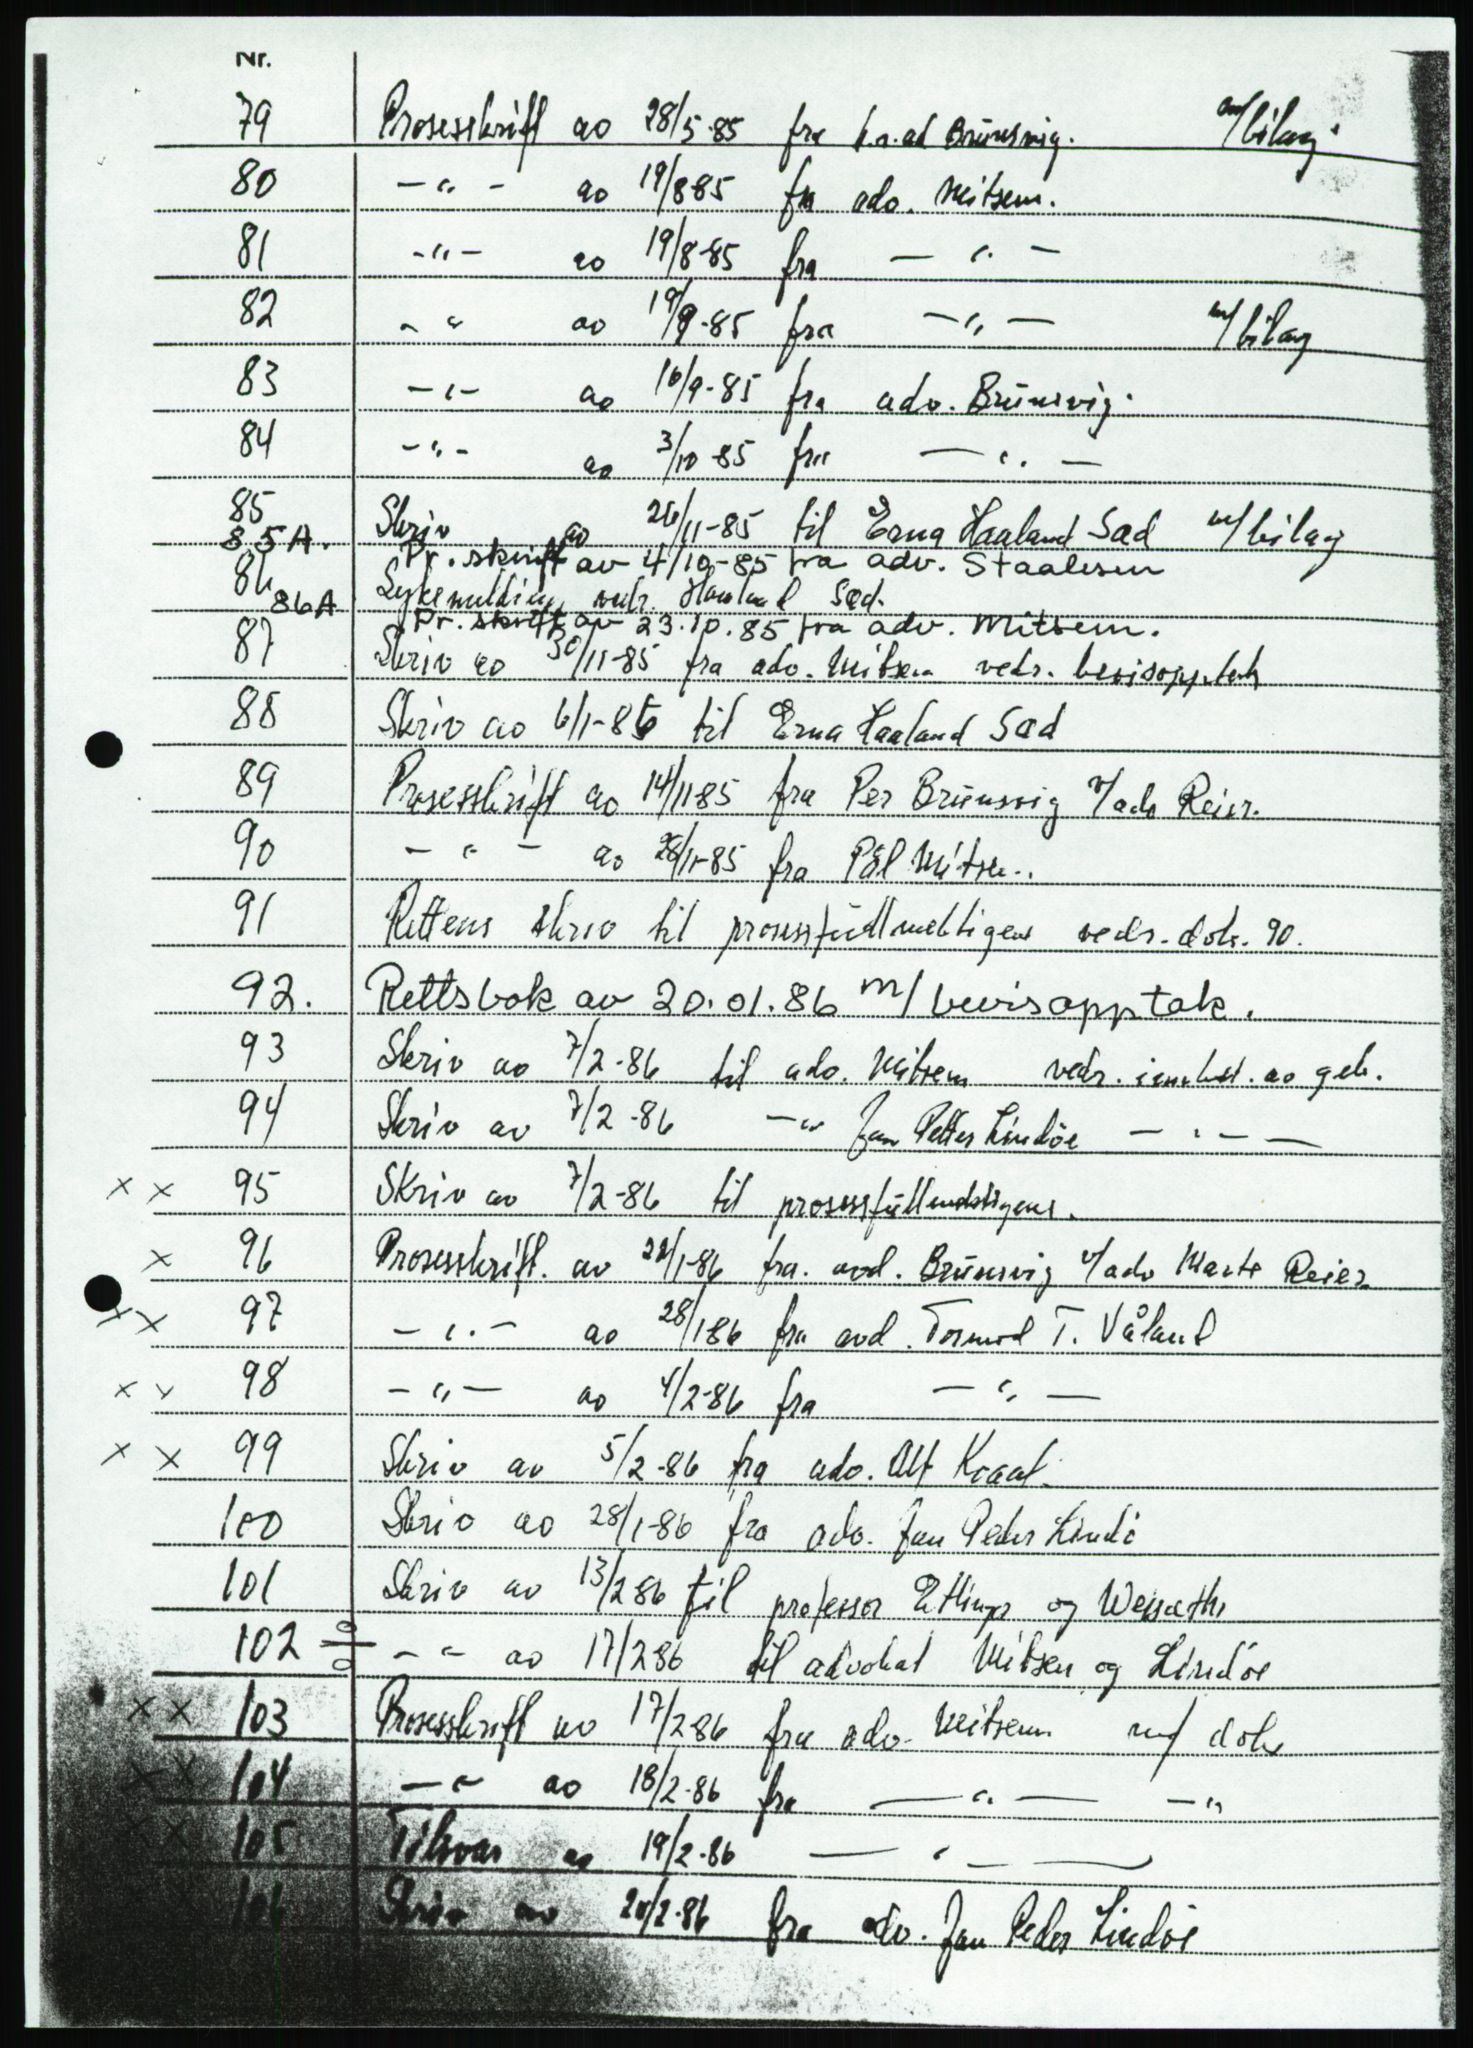 Nr.
79 Prosesskrift av 28/5-85 fra h.r.ad Brunsvig. m/bilag
80 -"- av 19/8-85 fra adv. Mitsem.
81 -"- av 19/8-85 fra -"-
82 -"- av 19/9-85 fra -"- m/bilag
83 -"- av 16/9-85 fra adv. Brünsvig.
84 -"- av 3/10-85 fra -"-
85 Skriv av 26/11-85 til Erna Haaland Sæd m/bilag
85A. Pr.skrift av 4/10-85 fra adv. Staalesen
86 Sykemelding vedr. Haaland Sæd.
86A Pr.skrift av 23.10.85 fra adv. Mitsem.
87 Skriv av 30/11-85 fra adv. Mitsem vedr. bevisopptak
88 Skriv av 6/1-86 til Erna Haaland Sæd
89 Prosesskrift av 14/11-85 fra Per Brünsvig v/adv Reier.
90 -"- av 28/11-85 fra Pål Mitsem.
91 Rettens skriv til prosessfullmektigene vedr. dok. 90.
92. Rettsbok av 20.01.86 m/bevisopptak.
93 Skriv av 7/2-86 til adv. Mitsem vedr. innbet. av geb.
94 Skriv av 7/2-86 -"- Jan Petter Lindöe -"-
x x 95 Skriv av 7/2-86 til prosessfullmektigene.
x 96 Prosesskrift. av 22/1-86 fra. avd. Brünsvig v/adv Marte Reier
x x 97 -"- av 28/1-86 fra avd. Tormod T. Våland
x x 98 -"- av 4/2-86 fra -"-
x x 99 Skriv av 5/2-86 fra adv. Alf
100 Skriv av 28/1-86 fra adv. Jan Peder Lindö
101 Skriv av 13/2 86 til professor Ettlinger og Weisæth
102 -"- av 17/2 86 til advokat Mitsem og Lindöe
x x 103 Prosesskrift av 17/2-86 fra adv. Mitsem m/ dok
x x 104 -"- av 18/2-86 fra -"- -"
x x 105 Tilsvar av 19/2-86 -"-
106 Skriv av 20/2-86 fra adv. Jan Peder Lindöe